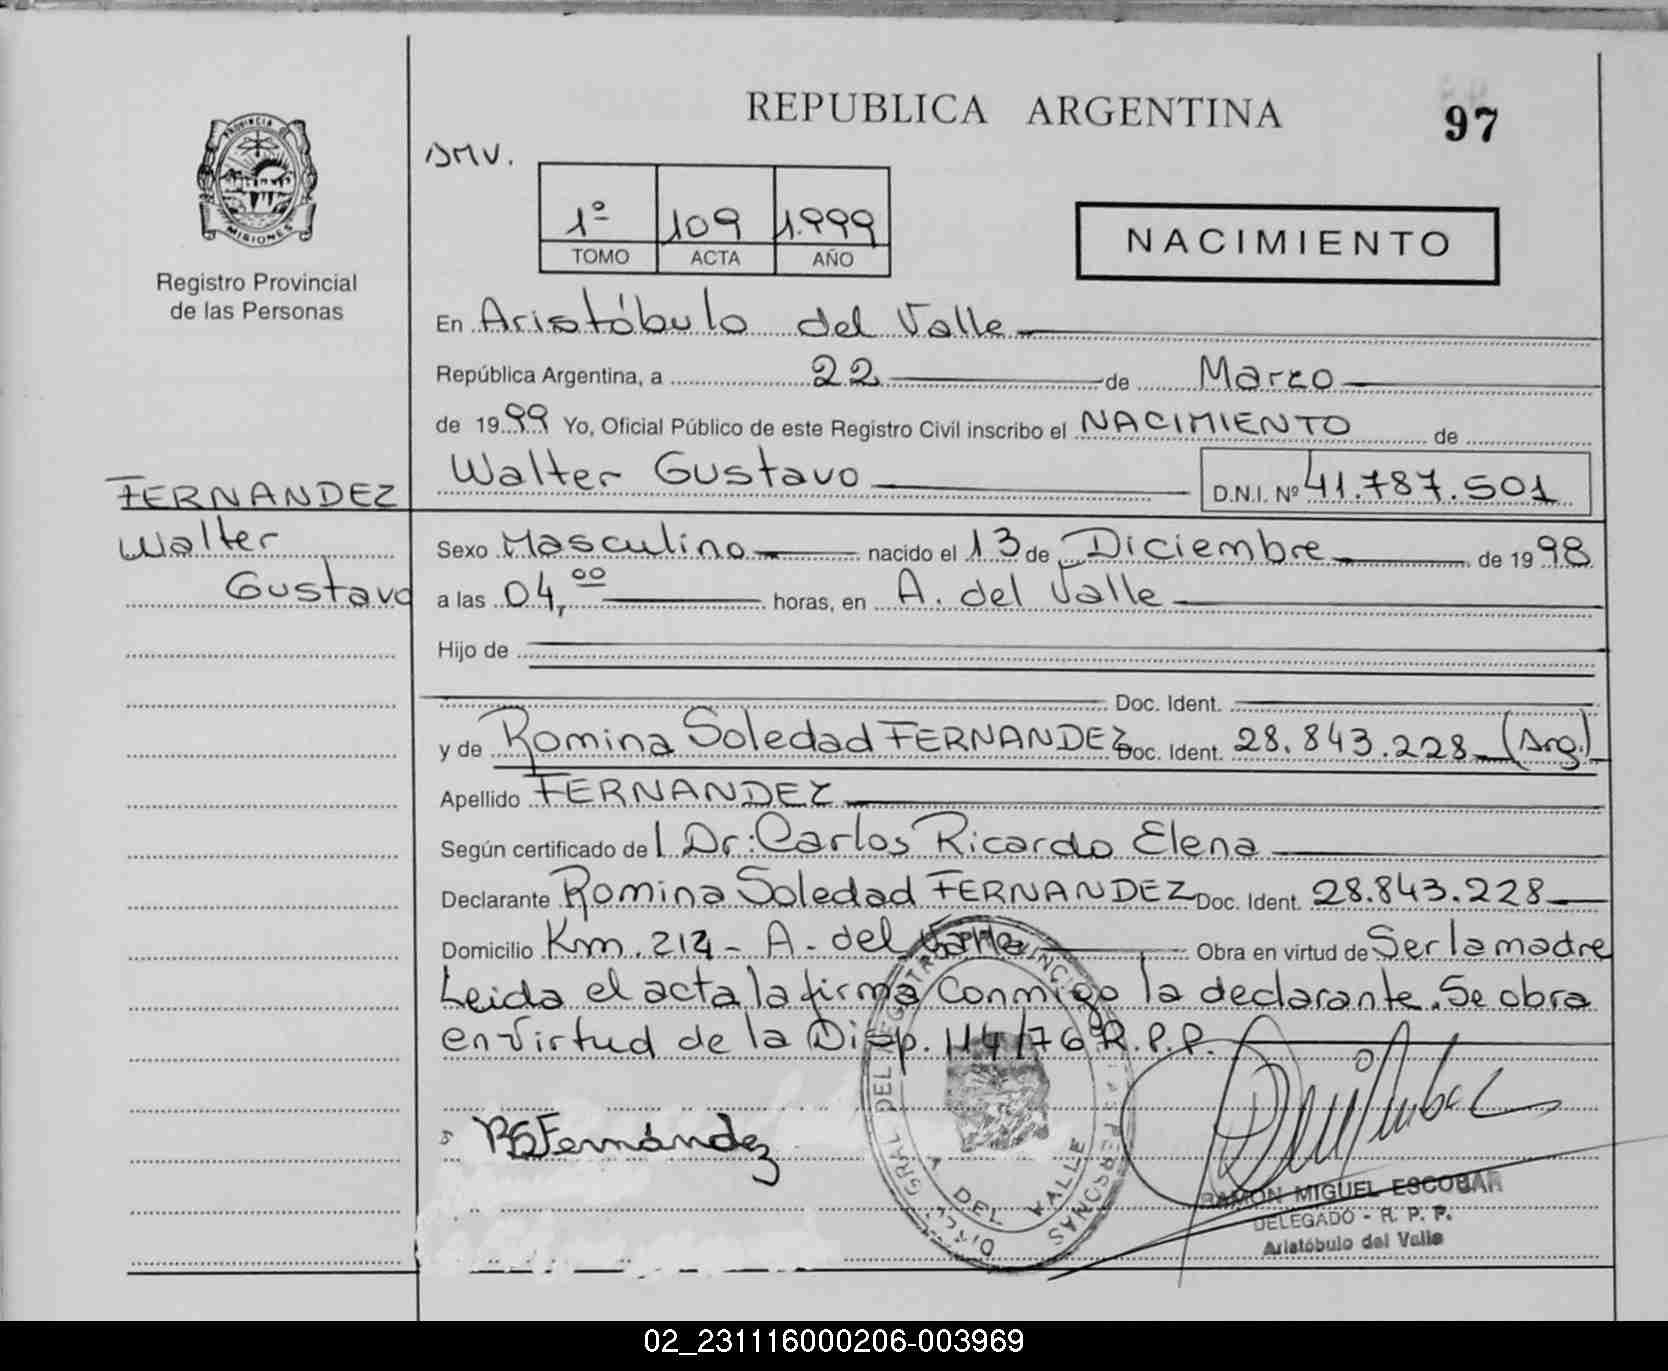 REPUBLICA ARGENTINA
97
PROVINCIA DE
MISIONES
Registro Provincial
de las Personas
SMV.
1º 109 1.999
TOMO ACTA AÑO
NACIMIENTO
En Aristóbulo del Valle
República Argentina, a 22 de Marzo
de 1999 Yo, Oficial Público de este Registro Civil inscribo el NACIMIENTO de
Walter Gustavo D.N.I. Nº 41.787.501
FERNANDEZ
Walter
Gustavo
Sexo Masculino nacido el 13 de Diciembre de 1998
a las 04,00 horas, en A. del Valle
Hijo de
Doc. Ident.
y de Romina Soledad FERNANDEZ Doc. Ident. 28.843.228 (Arg.)
Apellido FERNANDEZ
Según certificado del Dr: Carlos Ricardo Elena
Declarante Romina Soledad FERNANDEZ Doc. Ident. 28.843.228
Domicilio Km. 212 - A. del Valle Obra en virtud de Ser la madre
Leida el acta la firma conmigo la declarante. Se obra
en virtud de la Disp. 114/76 R.P.P.
RSFernández
DEL VALLE
RAMON MIGUEL ESCOBAR
DELEGADO - R. P. P.
Aristóbulo del Valle
02_231116000206-003969